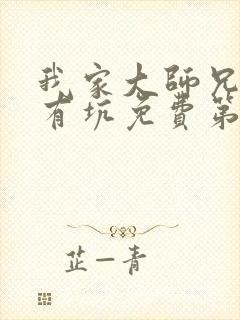 我家大師兄
有坑免費第
芷一青